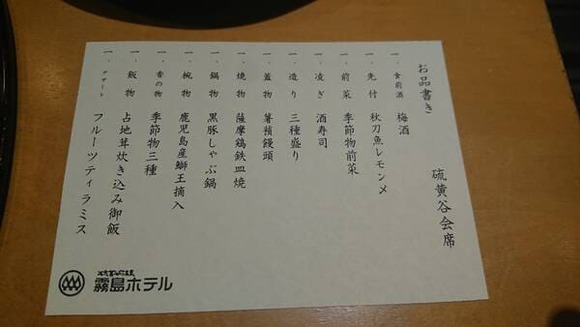 お品書き
硫黄谷会席
一、食前酒 梅酒
一、先付 秋刀魚レモン〆
一、前菜 季節物前菜
一、凌ぎ 酒寿司
一、造り 三種盛り
一、蓋物 薯蕷饅頭
一、焼物 薩摩鶏鉄皿焼
一、鍋物 黒豚しゃぶ鍋
一、椀物 鹿児島産鰤王摘入
一、香の物 季節物三種
一、飯物 占地茸炊き込み御飯
一、デザート フルーツティラミス
霧島ホテル